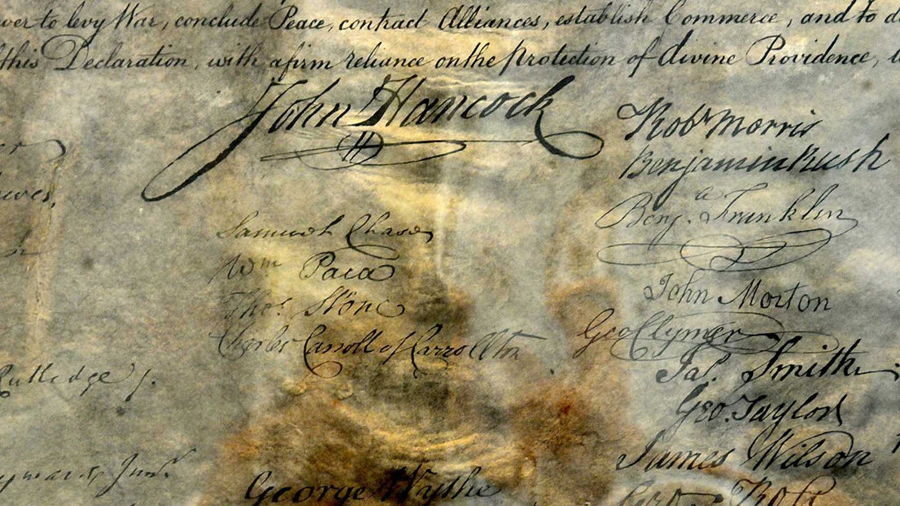 to levy War, conclude Peace, contract Alliances, establish Commerce, and to
this Declaration, with a firm reliance on the Protection of divine Providence,
John Hancock
Robt Morris
Benjamin Rush
Benja. Franklin
Samuel Chase
Wm Paca
Thos. Stone
Charles Carroll of Carrollton
John Morton
Geo Clymer
Jas. Smith.
Geo. Taylor
James Wilson
Geo. Ross
Rutledge
George Wythe